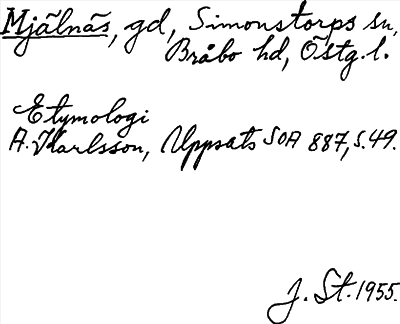 Mjälnäs, gd, Simonstorps sn,
Bråbo hd, Östg. l.
Etymologi
A. Karlsson, Uppsats SOA 887, s. 49.
J. St. 1955.